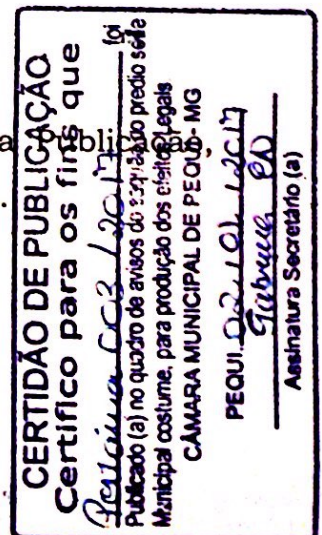 CERTIDÃO DE PUBLICAÇÃO
Certifico para os fins que
Portaria 003 / 2017 foi
Publicado (a) no quadro de avisos do prédio sede
Municipal costume, para produção dos efeitos legais
CÂMARA MUNICIPAL DE PEQUI - MG
PEQUI 02 / 01 / 2017
Assinatura Secretário (a)
a publicação,